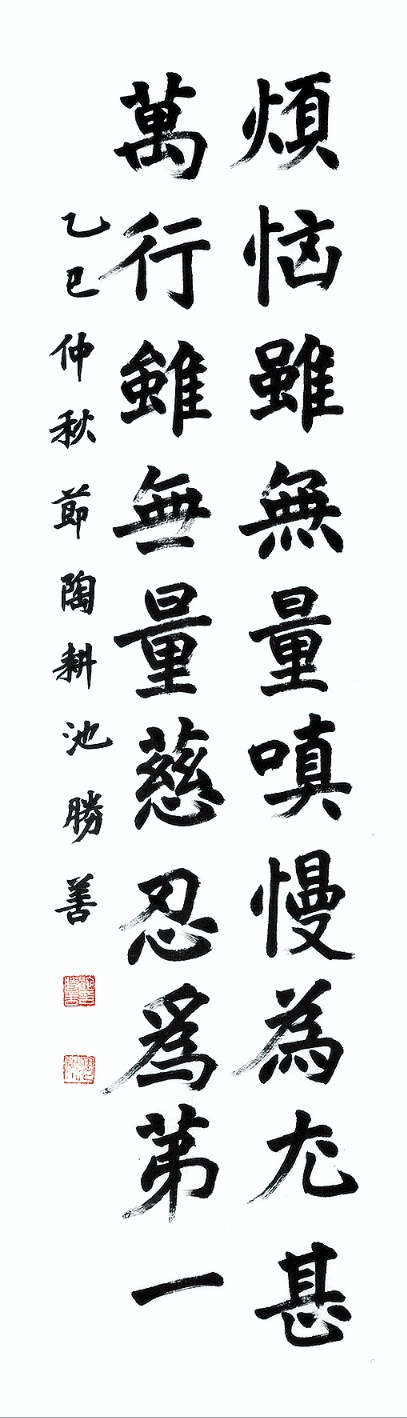 煩惱雖無量嗔慢為尤甚
萬行雖無量慈忍爲第一
乙巳仲秋節陶耕池勝善